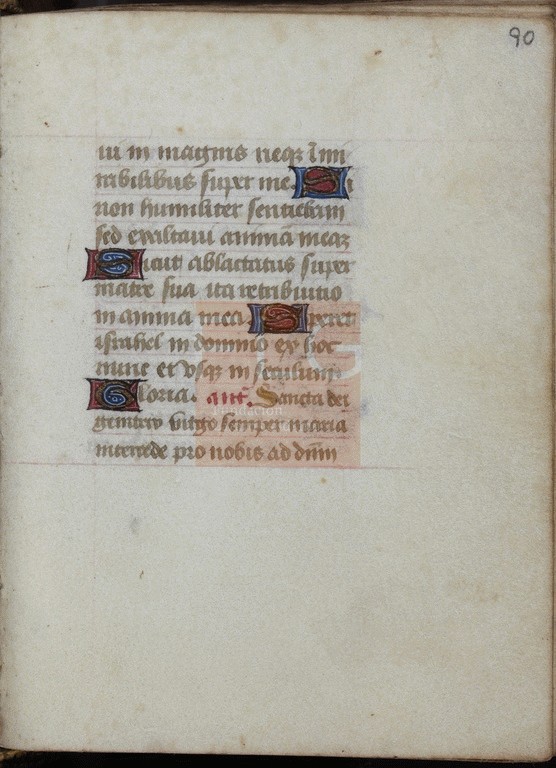 90
ui in magnis neqz i mi
rabilibus super me. Si
non humiliter sentiebam
sed exaltaui animā meaz
Sicut ablactatus super
matre sua ita retributio
in anima mea. Speret
israhel in domino ex hoc
nunc et vsqz in seculum.
Gloria. ant. Sancta dei
genitrix virgo semper maria
intercede pro nobis ad dnm̄